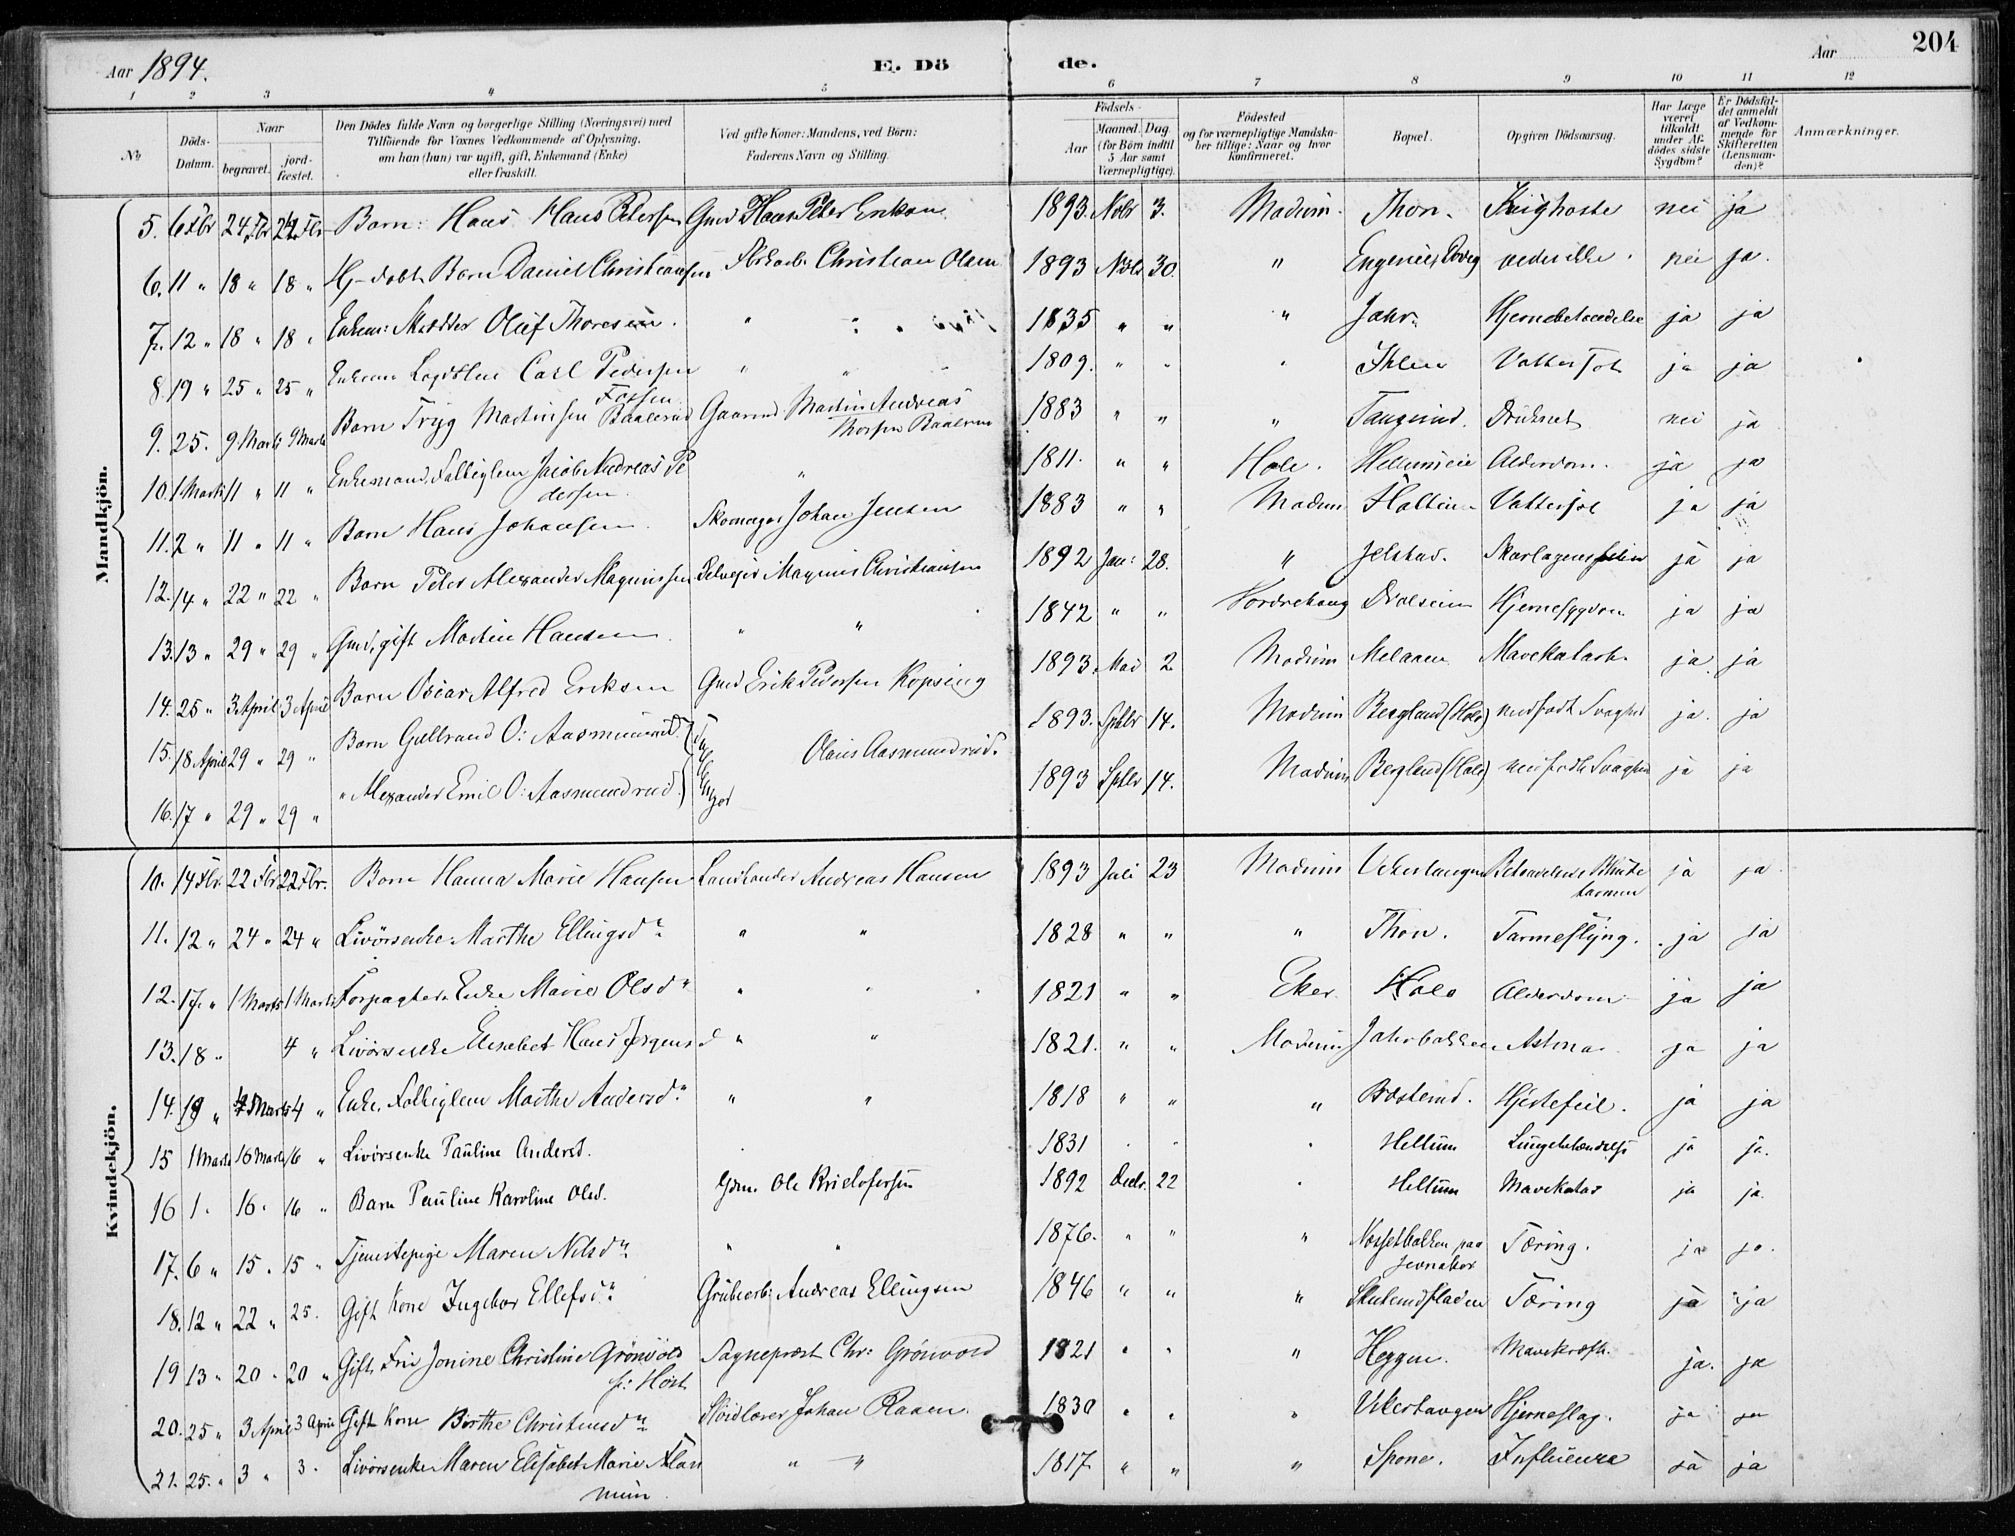 Aar 1894.
E. Dö
de.
Aar
204
1 2 3 4 5 6 7 8 9 10 11 12
No
Döds-Datum.
Naar
begravet.
jord-fæstet.
Den Dödes fulde Navn og borgerlige Stilling (Næringsvei) med
Tilföiende for Voxnes Vedkommende af Oplysning,
om han (hun) var ugift, gift, Enkemand (Enke)
eller fraskilt.
Ved gifte Koner: Mandens, ved Börn:
Faderens Navn og Stilling.
Födsels-
Aar
Maaned. Dag.
(for Börn indtil
5 Aar samt
Værnepligtige).
Födested
og for værnepligtige Mandska-
ber tillige: Naar og hvor
konfirmeret.
Bopæl.
Opgiven Dödsaarsag.
Har Læge
været
tilkaldt
under Af-
dödes sidste
Sygdom?
Er Dödsfal-
det anmeldt
af Vedkom-
mende for
Skifteretten
(Lensman-
den)?
Anmærkninger.
Mandkjön.
5. 6 Fbr 24 Fbr 24 Fbr Barn: Hans Hans Petersen Gmd Hans Peter Eriksen 1893. Nvbr 3. Modum. Thon. Kighoste nei ja
6. 11 " 18 " 18 " Hj-döbt Barn Daniel Christiansen Christian Olsen 1893 Nvbr 30. " nei ja.
7. 12 " 18 " 18 " Oluf Thoresen. " 1835 " " " Jahr. Hjernebetændelse ja ja
8. 19 " 25 " 25 " Carl Pedersen " 1809. " " " Ihlen Vattersot ja ja
Fossen
9. 25. 9 Marts 9 Marts Barn Tryg Martinsen Baalerud Gaarmd. Martin Andreas 1883 " " " nei ja
Thorsen Baalerud
10. 1 Marts 11 " 11 " Enkemand, Falbiglem Jacob Andreas Pe " 1811. " " Hole. Hellumeie Alderdom. ja ja
dersen.
11. 2 " 11 " 11 " Barn Hans Johansen. Skomager Johan Jensen 1883 " " Modum Vattersot ja ja
12. 14 " 22 " 22 " Barn Peter Alexander Magnussen Selveier Magnus Christiansen 1892 Jan: 28. " Jelstad. ja ja
13. 13 " 29 " 29 " Gmd, gift Martin Hansen. " " 1842 " " Hjernesygdom ja ja
14. 25 " 3 April 3 April Barn Oscar Alfred Eriksen Gmd Erik Pedersen Kopseng 1893. Mai 2 Modum Melaaen Mavekatarh. ja ja
15. 18 April 29 " 29 " Barn Gulbrand O: Aasmundrud. Tvillinger Olaus Aasmundrud. 1893. Sptbr 14. Modum Bergland (Hole) medfödt Svaghed ja. ja
16. 17 " 29 " 29 " " Alexander Emil O: Aasmundrud 1893 Sptbr 14. Modum Bergland (Hole) medfödt Svaghed ja ja
Kvindekjön.
10. 14 Fbr. 22 Fbr 22 Fbr. Barn Hanna Marie Hansen Landhandler Andreas Hansen 1893 Juli 23 Modum Vikersungen ja ja
11. 12 " 24 " 24 " Livörsenke Marthe Ellingsdr " " 1828 " " " Thon. Tarmeslyng. ja ja
12. 17. " 1 Marts 1 Marts Forpagter Enke Marie Olsdr " " 1821 " " Eker Hole Alderdom ja ja
13. 18 " 4 " Livörsenke Elisabet Hans Jörgensd " " 1821. " " Modum Jahrbakken Astma ja ja
14. 19 " 4 Marts 4 " Enke, Falbiglem Marthe Andersdr " " 1818 " " " Hjertefeil. ja ja
15 1 Marts 16 Marts 16 " Livörsenke Pauline Andersd. 1831 " " " Hellum Lungebetændelse ja ja.
16 1. 16. 16 " Barn Pauline Karoline Olsd. Gdm. Ole Kristofersen 1892 Decbr. 22 " Hellum Mavekatar ja ja.
17. 6 " 15 " 15 " Tjenestepige Maren Nilsdr " " 1876. " " " Tæring. ja ja.
Jevnaker
18. 12 " 22 " 25. Gift Kone Ingebor Ellefsdr Grubearb: Andreas Ellingsen 1846 " " " Skuterudfladen Tæring ja ja
19 13 " 20 " 20 " Gift Fru Jonine Christine Grönvold Sogneprest Chr: Grönvold 1821 " " " Heggen. Mavekræft. ja. ja
f: Höst
20. 25 " 3 April 3 April Gift Kone Birthe Christensdr Johan Raaen. 1830 " " " Vikersungen Hjerneslag. ja ja
21. 25. " 3 " 3. Livörsenke Maren Elisabet Marie Flan " " 1817. " " " Spone. Influenza ja ja
mum